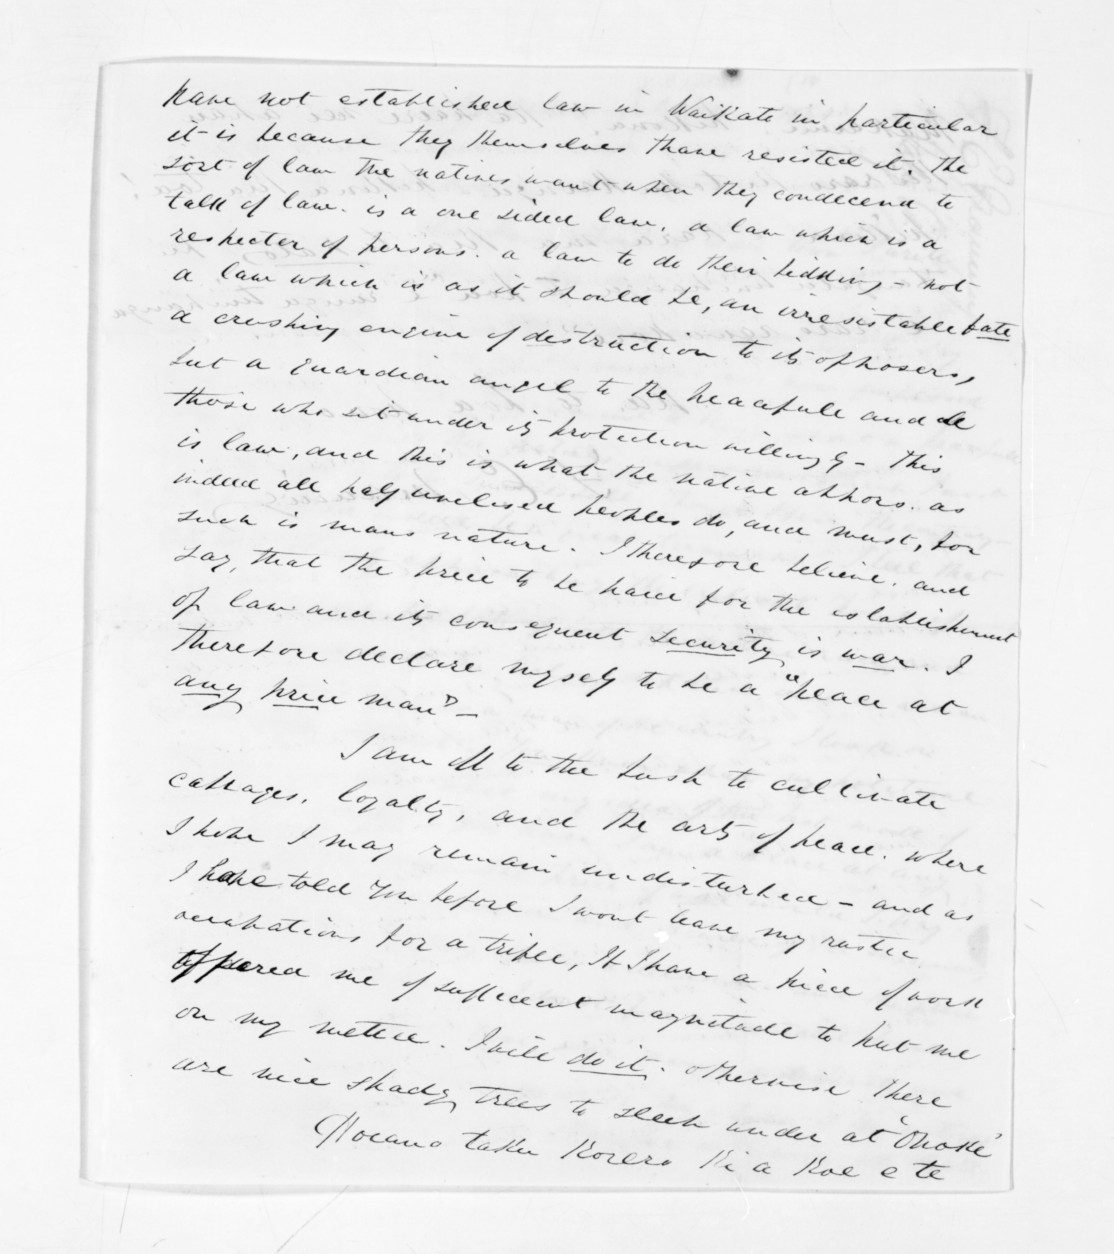 have not established law in Waikato in particular
it is because they themselves have resisted it. the
sort of law the natives want when they condecend to
talk of law. is a one sided law. a law which is a
respecter of persons. a law to do their bidding - not
a law which is as it should be, an irresistable fate
a crushing engine of destruction to its opposers,
but a guardian angel to the peacefule and
those who sit under its protection willingly - This
is law, and this is what the native abhors. as
indeed all half civilised peoples do, and must, for
such is mans nature. I therefore believe. and
say, that the price to be paid for the establishment
of law and its consequent security is war. I
therefore declare myself to be a "peace at
any price man" -
I am off to the bush to cultivate
cabbages, loyalty, and the arts of peace. where
I hope I may remain undisturbed - and as
I have told you before I wont leave my rustic
occupations for a trifle, If I have a piece of work
offered me of sufficient magnitude to put me
on my mettle. I will do it. otherwise there
are nice shady trees to sleep under at 'Onoke'
Koeano taku Korero Ki a Koe e te